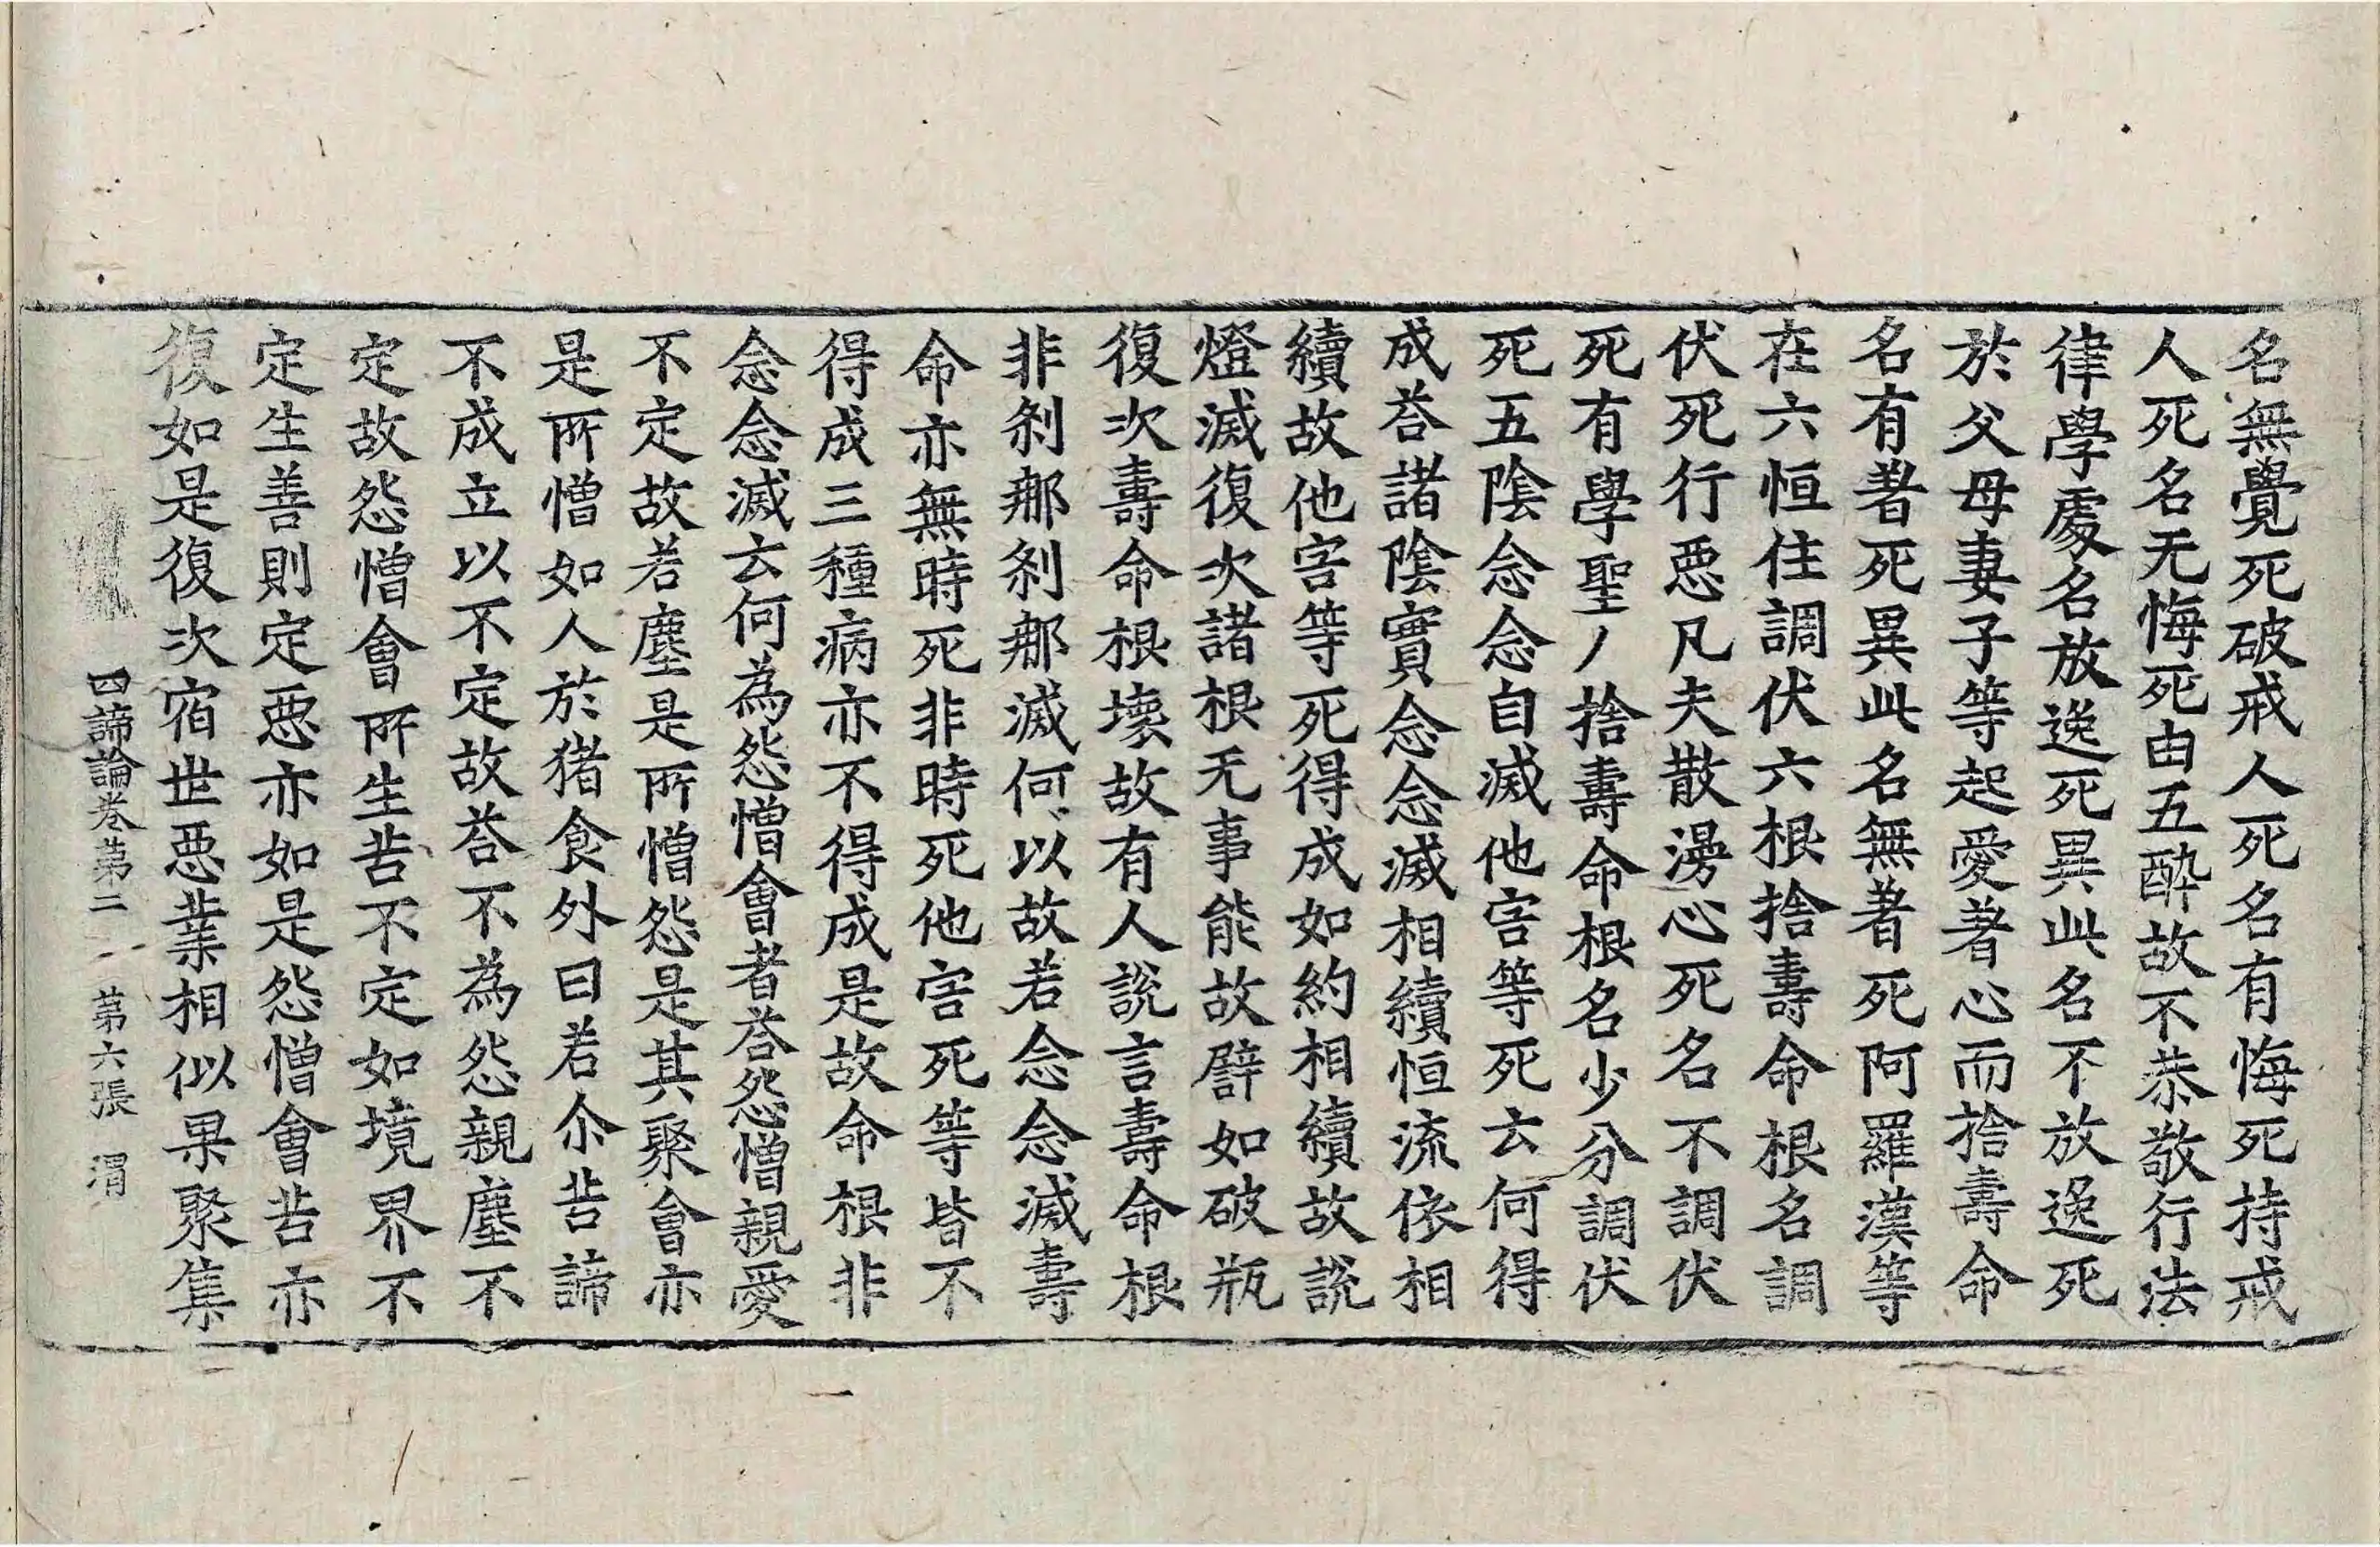 名無覺死破戒人死名有悔死持戒
人死名无悔死由五酔故不恭敬行法
律學處名放逸死異此名不放逸死
於父母妻子等起愛著心而捨壽命
名有著死異此名無著死阿羅漢等
在六恒住調伏六根捨壽命根名調
伏死行惡凡夫散漫心死名不調伏
死有學聖人捨壽命根名少分調伏
死五陰念念自滅他害等死云何得
成荅諸陰實念念滅相續恒流依相
續故他害等死得成如約相續故說
燈滅復次諸根无事能故譬如破瓶
復次壽命根壞故有人說言壽命根
非剎那剎那滅何以故若念念滅壽
命亦無時死非時死他害死等皆不
得成三種病亦不得成是故命根非
念念滅云何為怨憎會者荅怨憎親愛
不定故若塵是所憎怨是其聚會亦
是所憎如人於猪食外曰若尒苦諦
不成立以不定故荅不為怨親塵不
定故怨憎會所生苦不定如境界不
定生善則定惡亦如是怨憎會苦亦
復如是復次宿世惡業相似果聚集
四諦論卷第二　第六張　渭